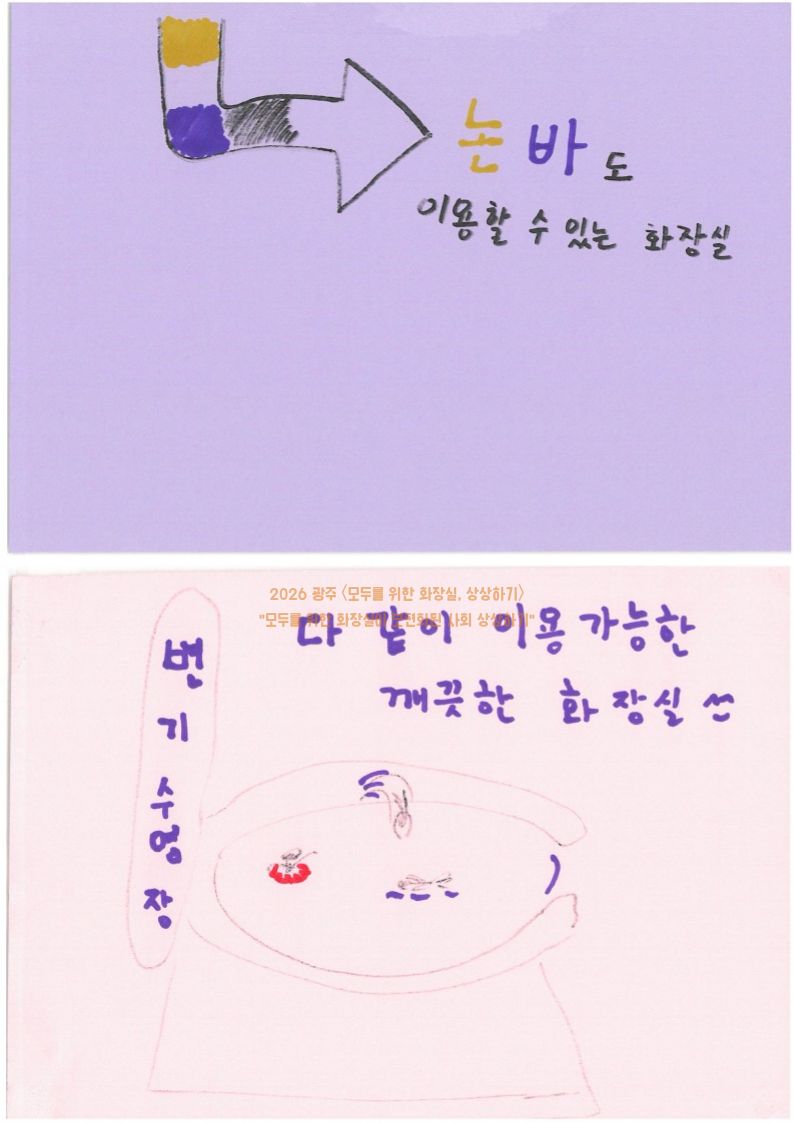 논바도
이용할 수 있는 화장실
2026 광주 <모두를 위한 화장실, 상상하기>
"모두를 위한 화장실이 보편화된 사회 상상하기"
다 같이 이용 가능한
깨끗한 화장실 ㅆ
변
기
수
영
장